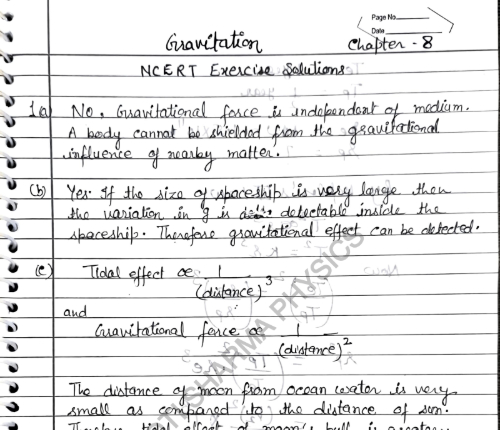 Page No.
Date
Gravitation Chapter - 8
NCERT Exercise Solutions
1a) No, Gravitational force is independent of medium.
A body cannot be shielded from the gravitational
influence of nearby matter.
(b) Yes. If the size of spaceship is very large then
the variation in g is detectable inside the
spaceship. Therefore gravitational effect can be detected.
(c) Tidal effect ∝ 1/(distance)³
and
Gravitational force ∝ 1/(distance)²
The distance of moon from ocean water is very
small as compared to the distance of sun.
Therefore tidal effect of moon's pull is greater
SHARMA PHYSICS